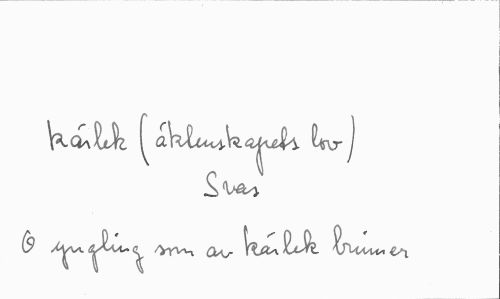 kärlek (äktenskapets lov)
Svas
O yngling som av kärlek brinner